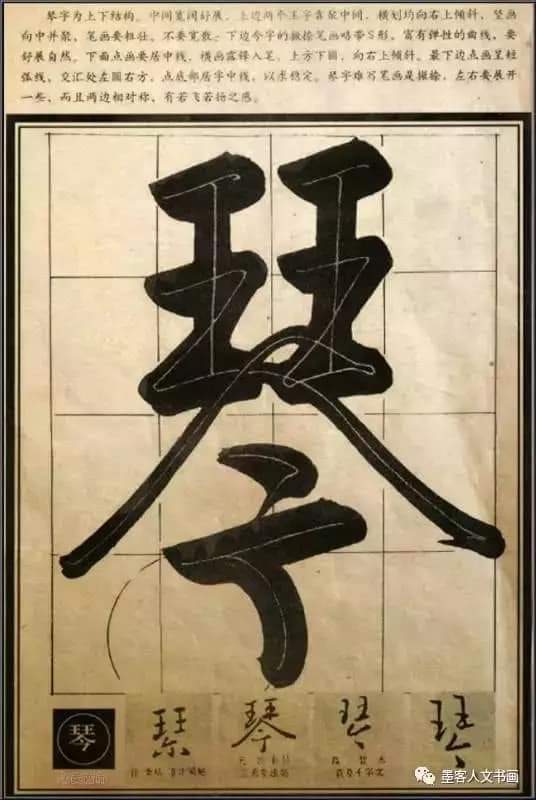 琴字为上下结构。中间宽阔舒展，上边两个王字靠聚中间，横划均向右上倾斜，竖画
向中并聚，笔画要粗壮，不要宽散；下边今字的撇捺笔画略带S形，富有弹性的曲线，要
舒展自然。下面点画要居中线，横画露锋入笔，上方下圆，向右上倾斜。最下边点画呈短
弧线，交汇处左圆右方，点底部居字中线，以求稳定。琴字难写笔画是撇捺，左右要展开
一些，而且两边相对称，有若飞若扬之感。
琴
琴
琴
琴
琴
琴
墨客人文书画